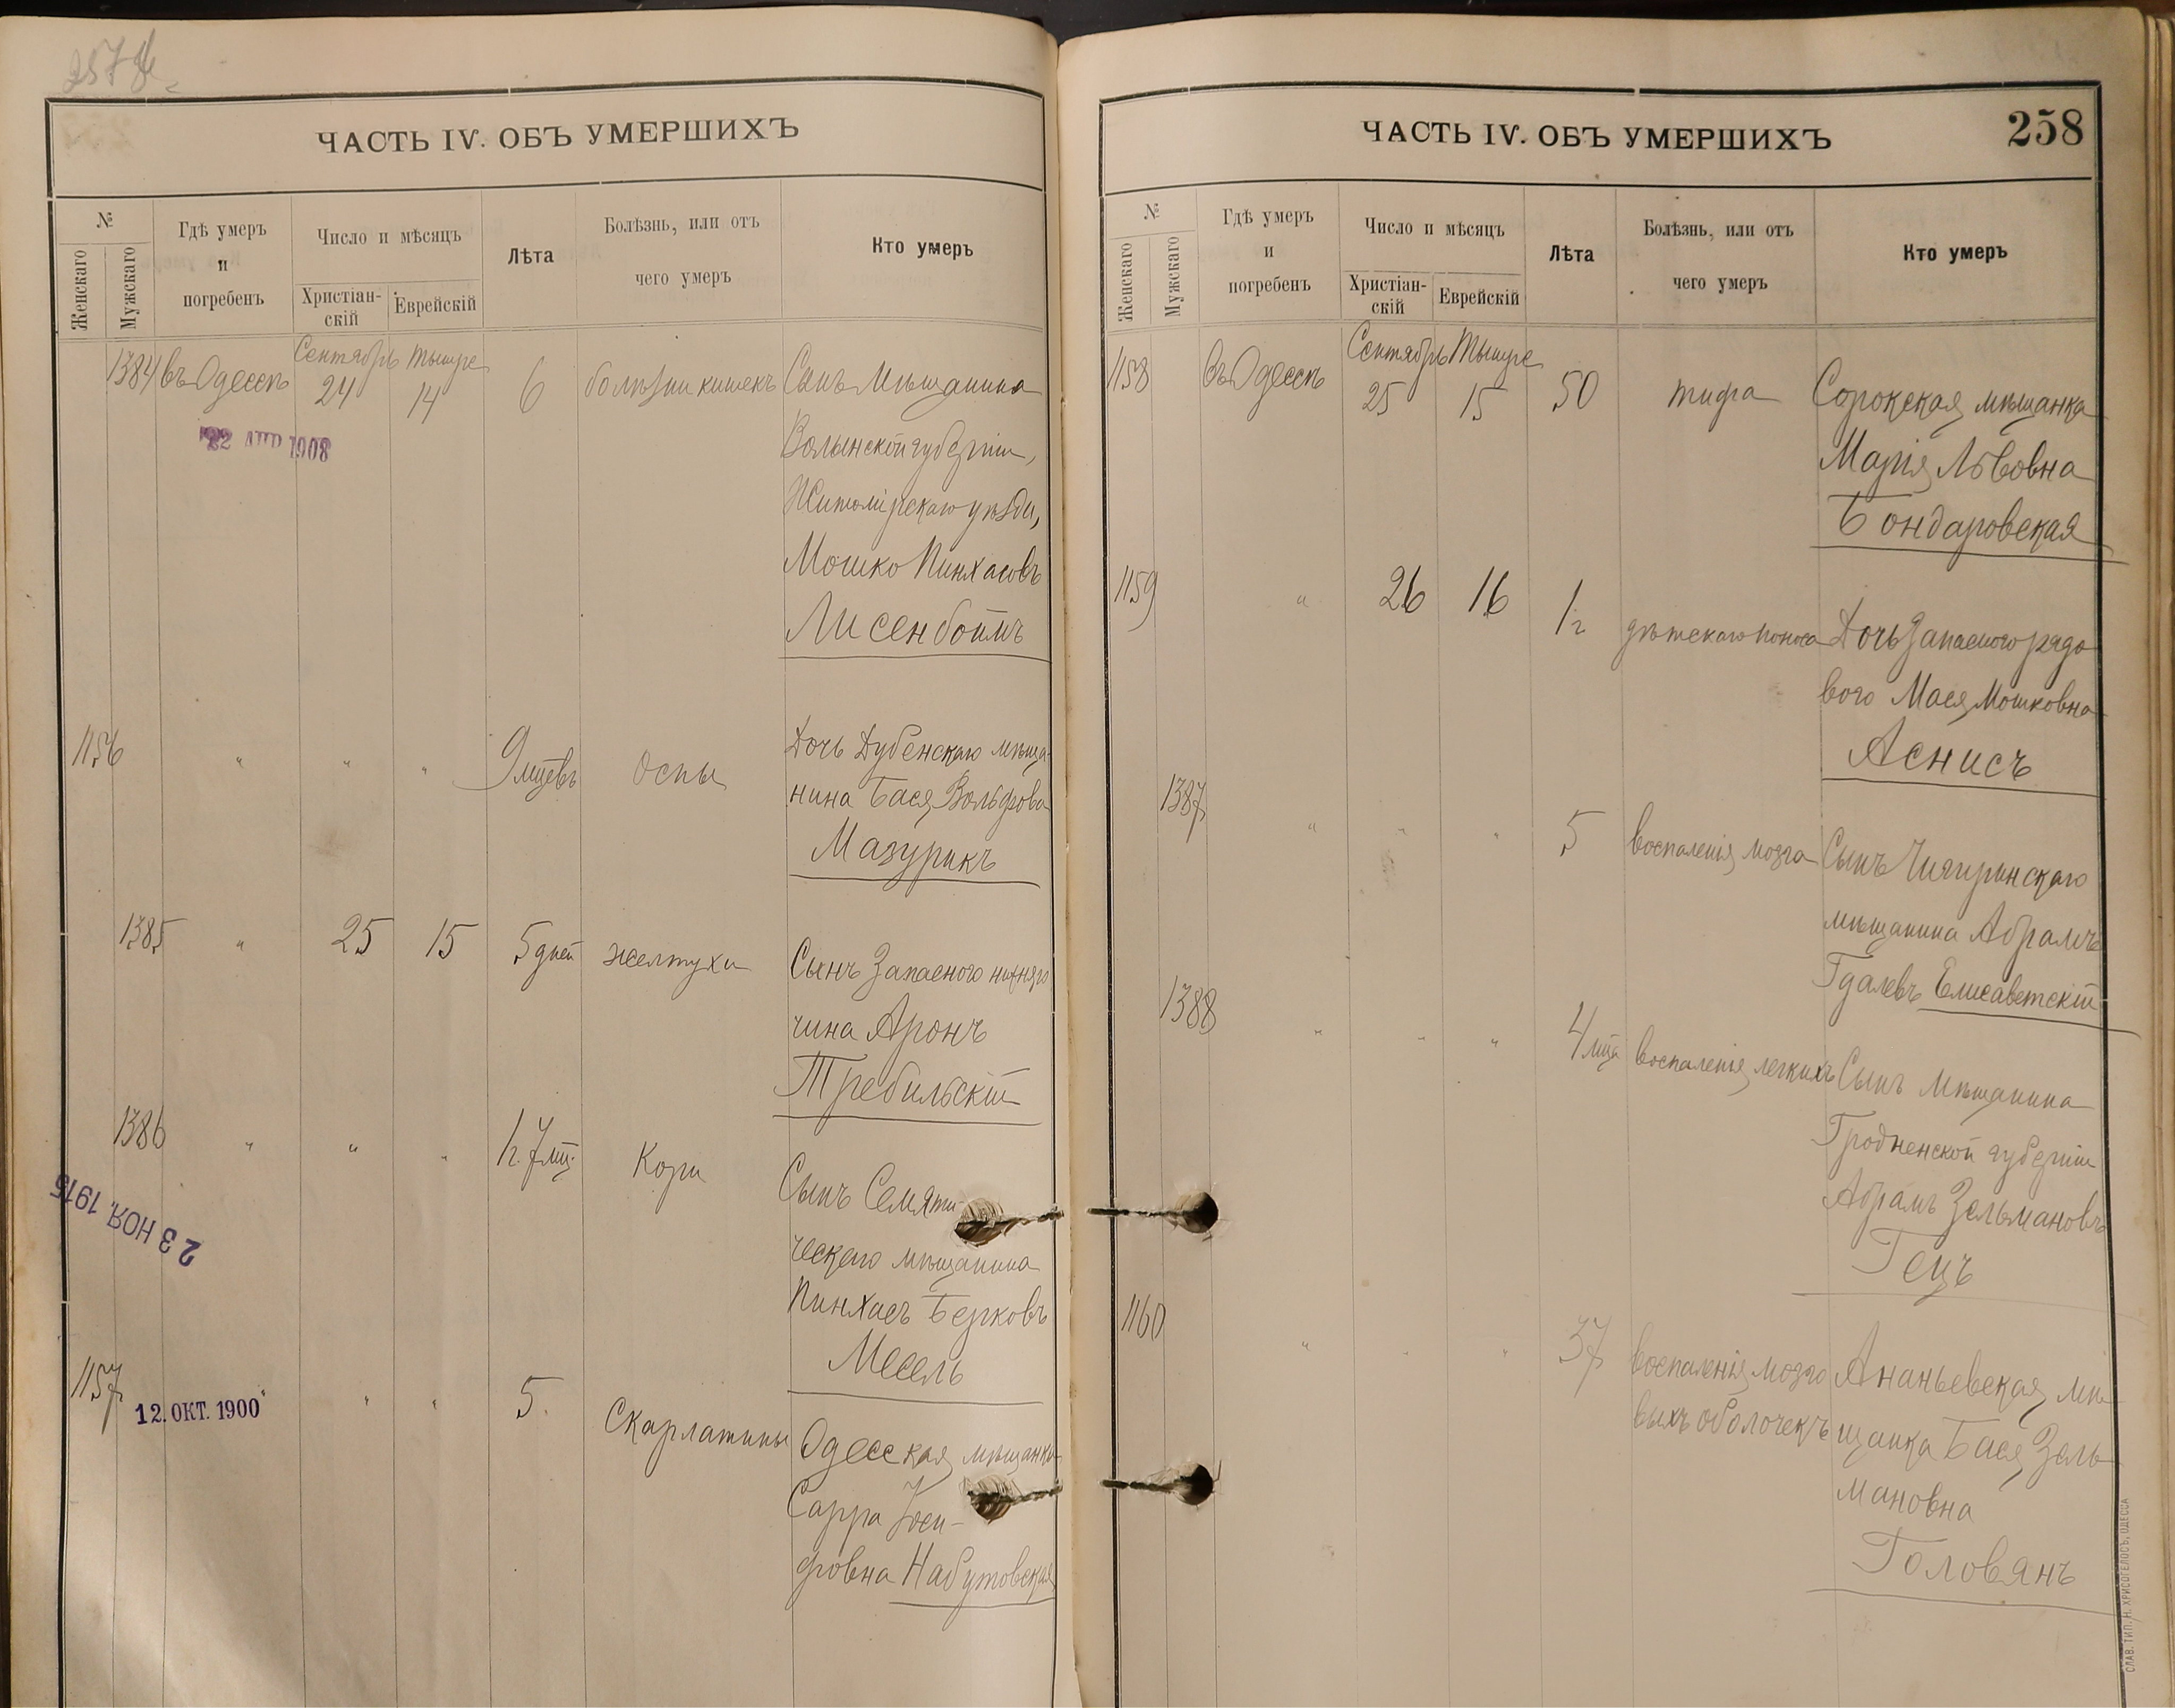 ЧАСТЬ IV. ОБЪ УМЕРШИХЪ
№
Женскаго
Мужскаго
Гдѣ умеръ
и
погребенъ
Число и мѣсяцъ
Христіан-
скій
Еврейскій
Лѣта
Болѣзнь, или отъ
чего умеръ
Кто умеръ
Сентябрь Тышре
1384 въ Одессѣ 24 14 6 болѣзни кишекъ Сынъ Мѣщанина
22 АПР 1908
Волынской губерніи,
Житомірскаго уѣзда,
Мошко Пинхасовъ
Лисенбоймъ
1156 " " " 9 мцевъ Оспы Дочь Дубенскаго мѣща-
нина Бася Вольфова
Мазурикъ
1385 " 25 15 5 дней желтухи Сынъ Запаснаго нижняго
чина Аронъ
Требильскій
1386 " " " 1 г. 7 мц. Кори Сынъ Семяти-
23 НОЯ. 1915
ческаго мѣщанина
Пинхасъ Берковъ
Месель
1157 " " " 5 Скарлатины Одесская мѣщанка
12. ОКТ. 1900
Сарра Іоси-
фовна Набутовская
ЧАСТЬ IV. ОБЪ УМЕРШИХЪ
258
№
Женскаго
Мужскаго
Гдѣ умеръ
и
погребенъ
Число и мѣсяцъ
Христіан-
скій
Еврейскій
Лѣта
Болѣзнь, или отъ
чего умеръ
Кто умеръ
Сентябрь Тышре
1158 въ Одессѣ 25 15 50 тифа Сорокская мѣщанка
Марія Львовна
Бондаровская
1159 " 26 16 1 г. дѣтскаго поноса Дочь Запасного рядо
вого Мася Мошковна
Аснисъ
1387 " " " 5 воспаленія мозга Сынъ Чигиринскаго
мѣщанина Абрамъ
Гдалевъ Елисаветскій
1388 " " " 4 мца воспаленія легкихъ Сынъ Мѣщанина
Гродненской губерніи
Абрамъ Зельмановъ
Гецъ
1160 " " " 37 воспаленія мозго Ананьевская мѣ
выхъ оболочекъ щанка Бася Зель
мановна
Головянъ
СЛАВ. ТИП. Н. ХРИСОГЕЛОСЪ, ОДЕССА